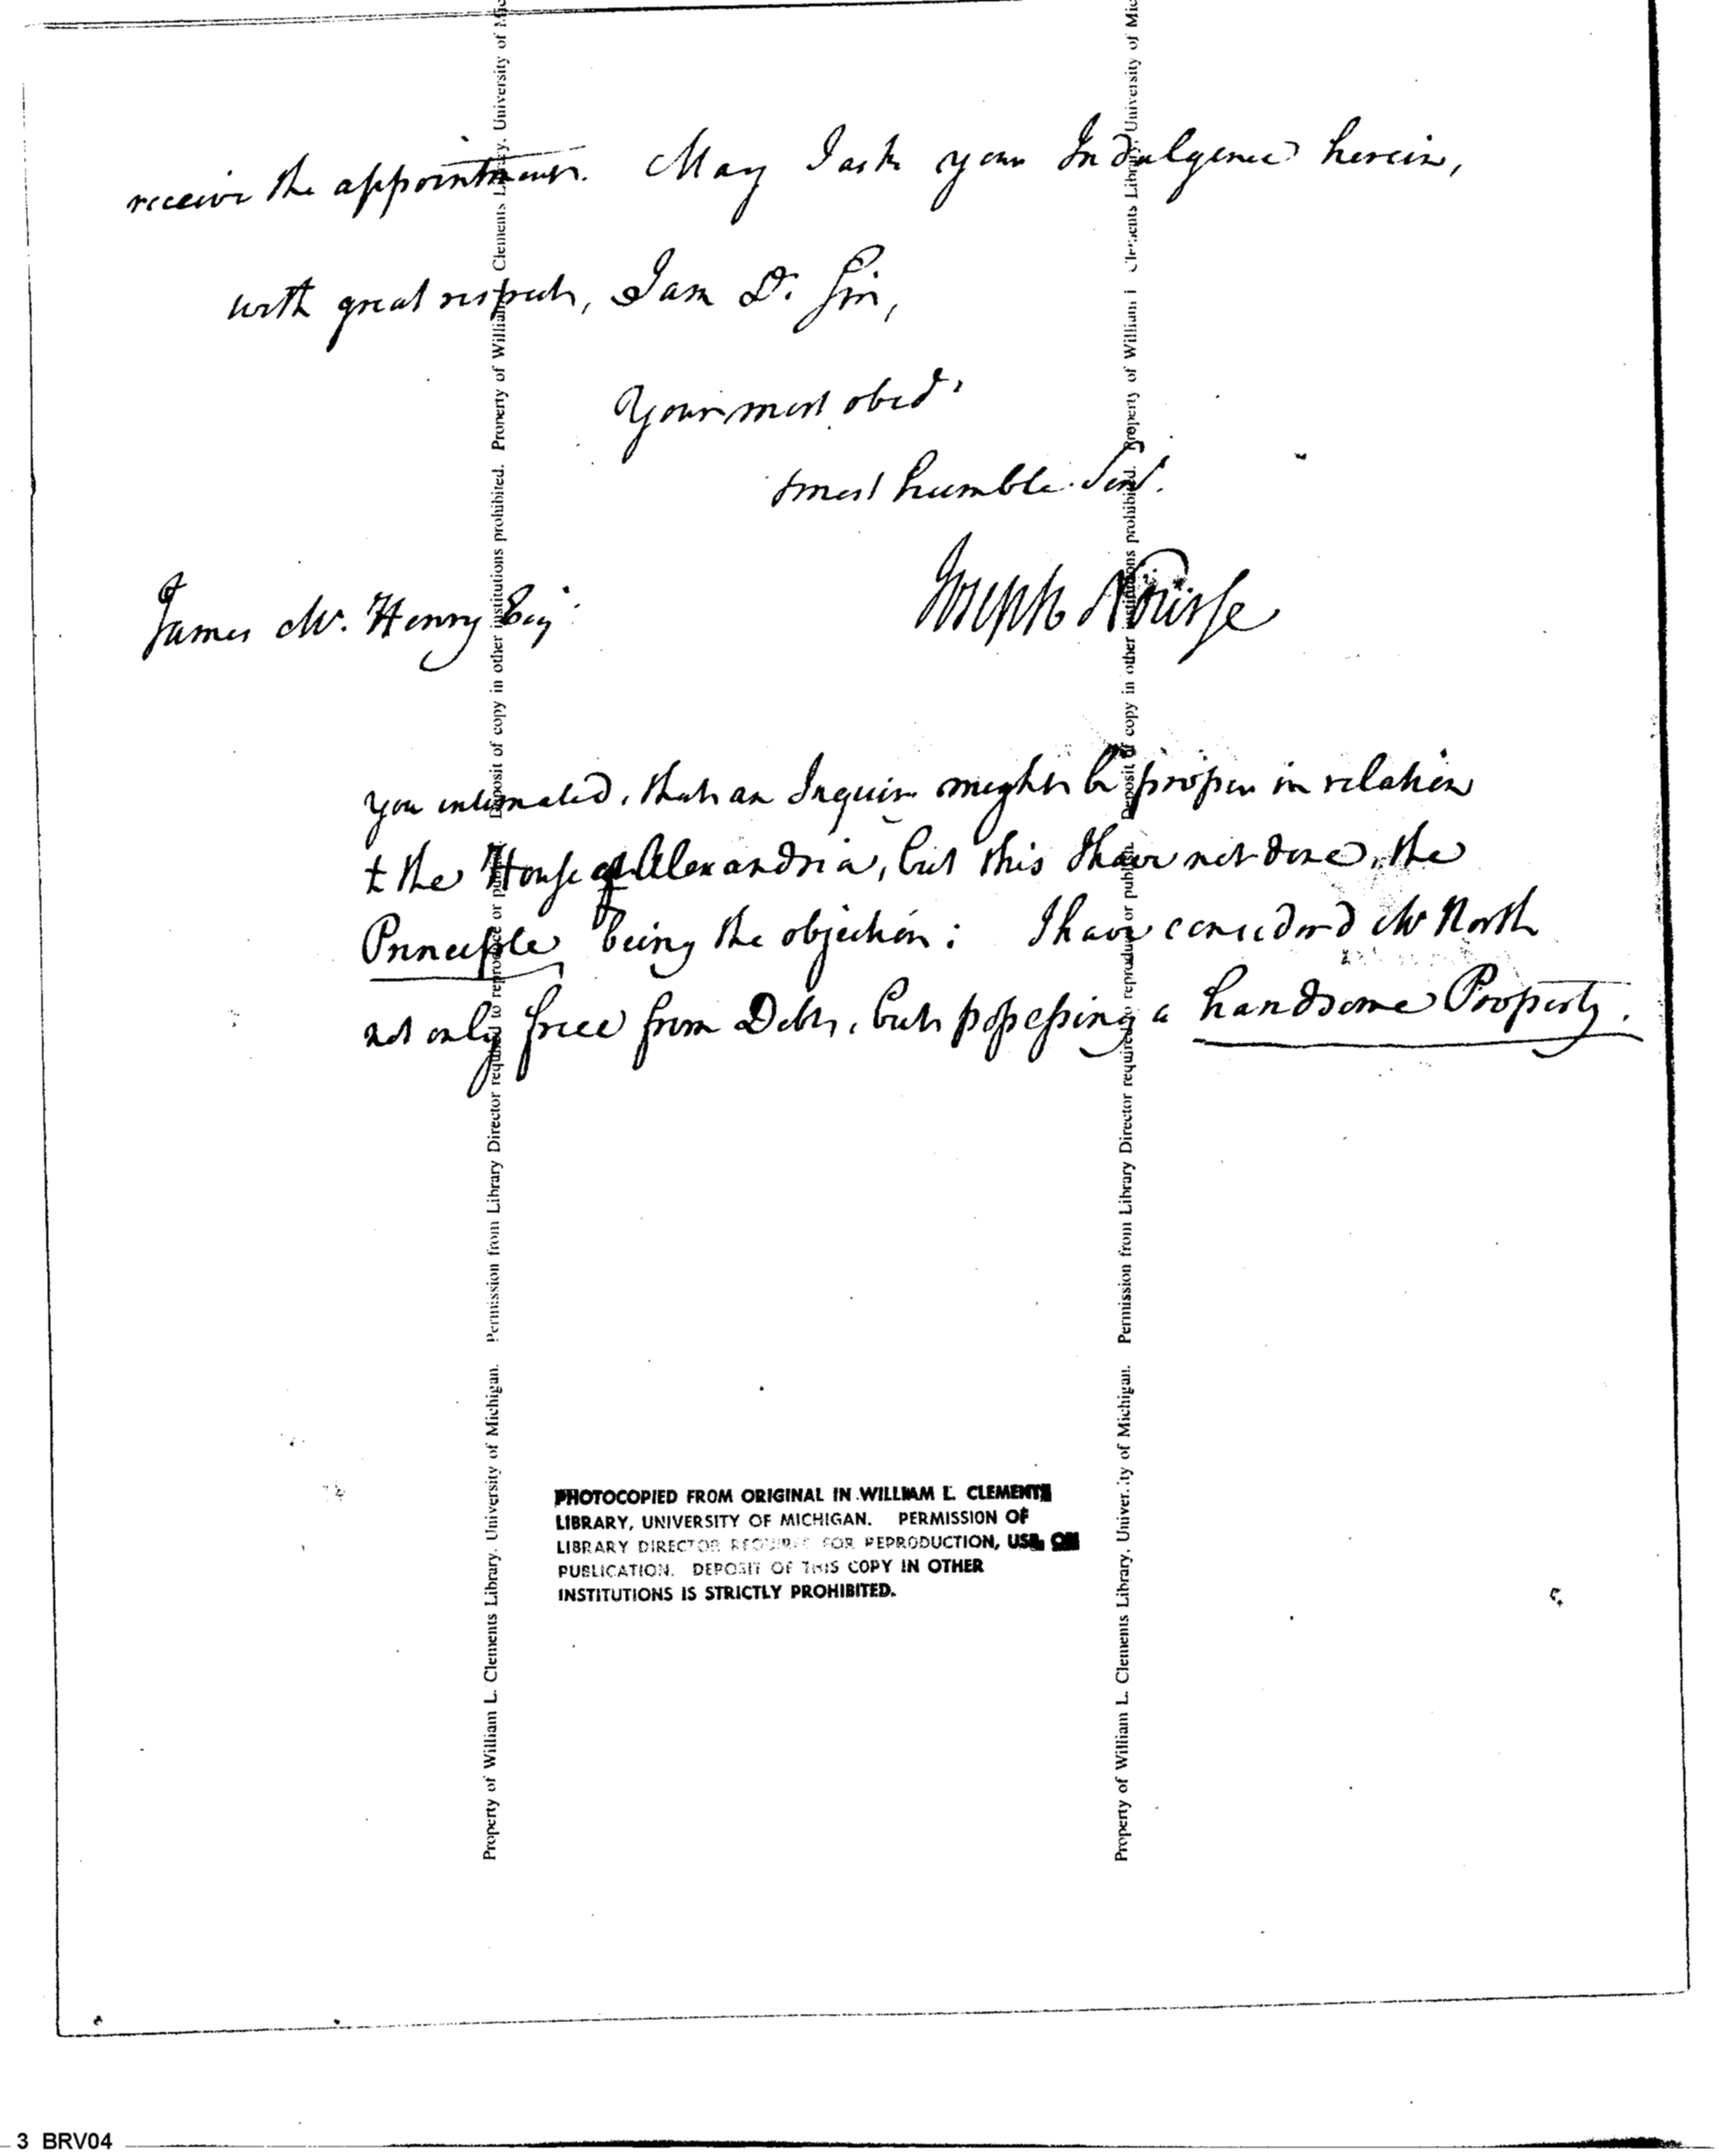 receive the appointment. May I ask your Indulgence herein,
with great respect, I am Dr. Sir,
Your most obedt.
& most humble Servt.
Joseph Nourse
James McHenry Esq:
you intimated, that an Inquiry might be proper in relation
to the House of Alexandria, but this I have not done, the
Principle being the objection: I have considered Mr North
not only free from Debt, but possessing a handsome Property.
Property of William L. Clements Library, University of Michigan. Permission from Library Director required to reproduce or publish. Deposit of copy in other institutions prohibited. Property of William L. Clements Library, University of Mic
Property of William L. Clements Library, University of Michigan. Permission from Library Director required to reproduce or publish. Deposit of copy in other institutions prohibited. Property of William L. Clements Library, University of Mic
PHOTOCOPIED FROM ORIGINAL IN WILLIAM L. CLEMENTS
LIBRARY, UNIVERSITY OF MICHIGAN. PERMISSION OF
LIBRARY DIRECTOR REQUIRED FOR REPRODUCTION, USE, OR
PUBLICATION. DEPOSIT OF THIS COPY IN OTHER
INSTITUTIONS IS STRICTLY PROHIBITED.
3 BRV04